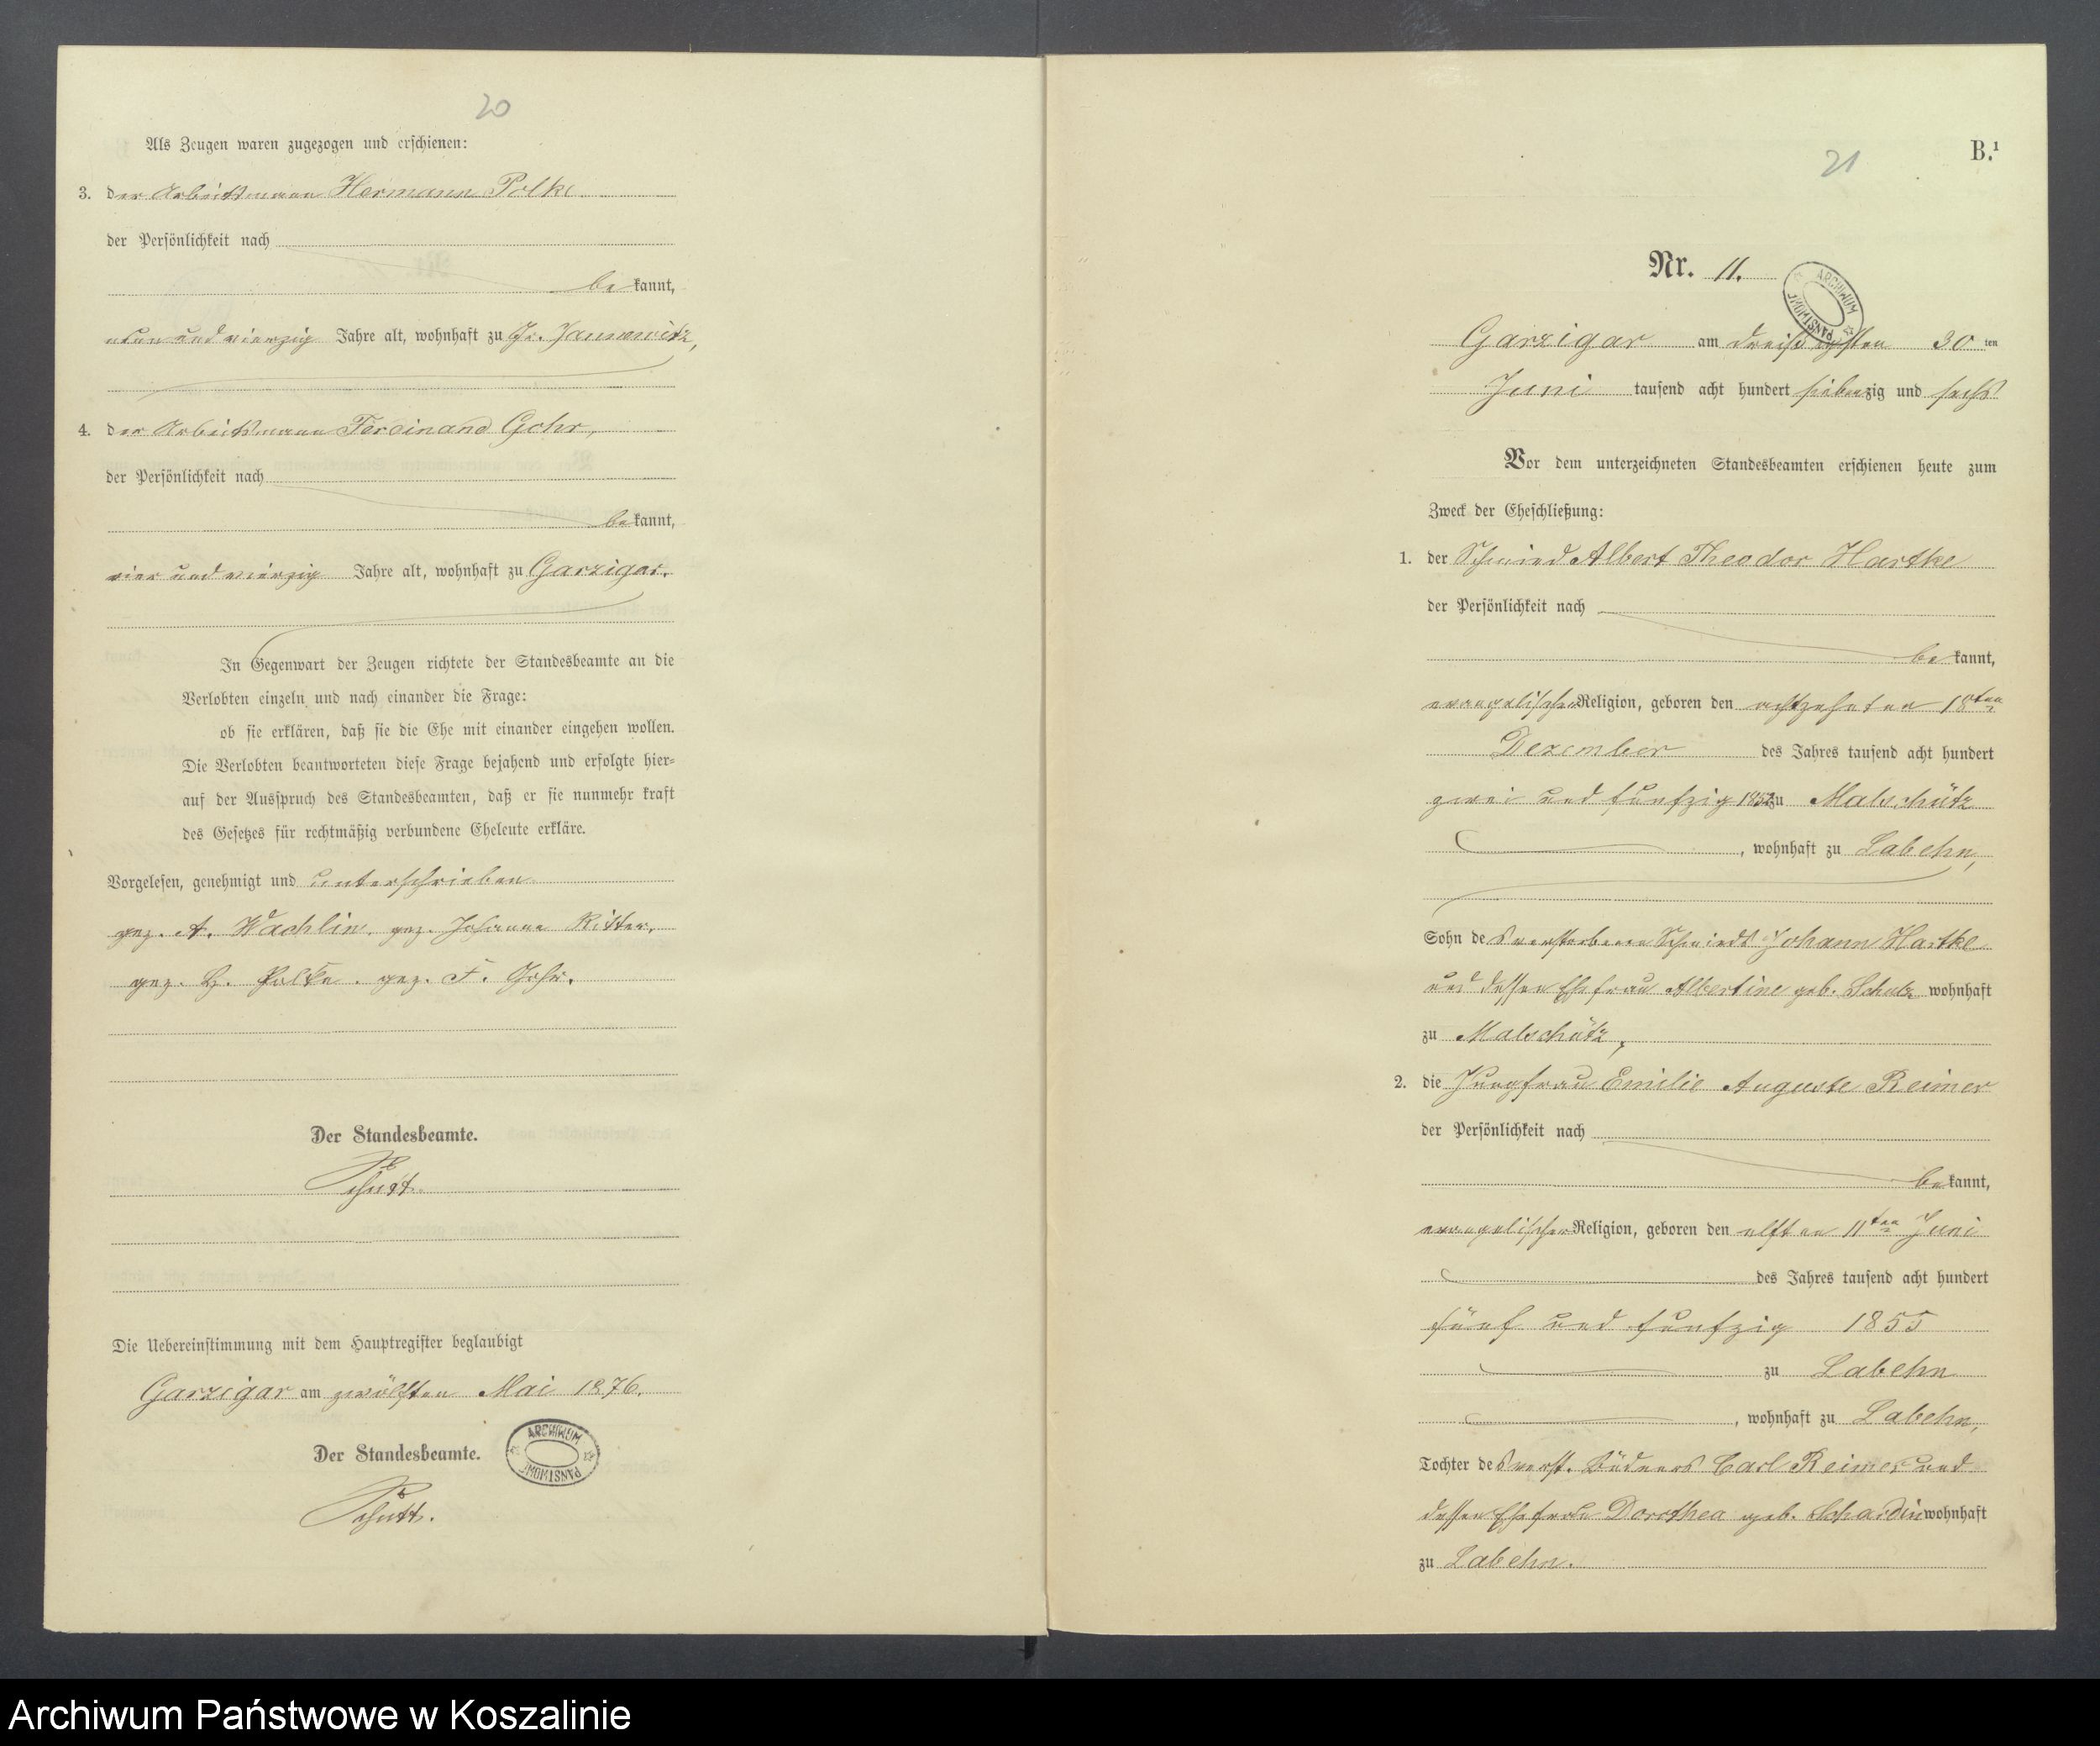 20
Als Zeugen waren zugezogen und erschienen:
3. der Arbeitsmann Hermann Polke
der Persönlichkeit nach
bekannt,
und vierzig Jahre alt, wohnhaft zu Gr. Jannewitz,
4. der Arbeitsmann Ferdinand Gohr,
der Persönlichkeit nach
bekannt,
vier und vierzig Jahre alt, wohnhaft zu Garzigar.
In Gegenwart der Zeugen richtete der Standesbeamte an die
Verlobten einzeln und nach einander die Frage:
ob sie erklären, daß sie die Ehe mit einander eingehen wollen.
Die Verlobten beantworteten diese Frage bejahend und erfolgte hier-
auf der Ausspruch des Standesbeamten, daß er sie nunmehr kraft
des Gesetzes für rechtmäßig verbundene Eheleute erkläre.
Vorgelesen, genehmigt und unterschrieben
gez. A. Wachlin. gez. Johanna Ritter.
gez. H. Polke. gez. F. Gohr.
Der Standesbeamte.
Die Uebereinstimmung mit dem Hauptregister beglaubigt
Garzigar am zwölften Mai 1876.
Der Standesbeamte.
ARCHIWUM PAŃSTWOWE
B.¹
21
Nr. 11.
ARCHIWUM PAŃSTWOWE
Garzigar am dreißigsten 30 ten
Juni tausend acht hundert siebenzig und sechs
Vor dem unterzeichneten Standesbeamten erschienen heute zum
Zweck der Eheschließung:
1. der Schmied Albert Theodor Hartke
der Persönlichkeit nach
bekannt,
evangelischer Religion, geboren den achtzehnten 18ten
Dezember des Jahres tausend acht hundert
zwei und funfzig 1852 zu Malschütz
, wohnhaft zu Labehn,
Sohn des verstorbenen Schmieds Johann Hartke
und dessen Ehefrau Albertine geb. Schulz wohnhaft
zu Malschütz,
2. die Jungfrau Emilie Auguste Reimer
der Persönlichkeit nach
bekannt,
evangelischer Religion, geboren den elften 11ten Juni
des Jahres tausend acht hundert
fünf und funfzig 1855
zu Labehn
, wohnhaft zu Labehn,
Tochter des verst. Büdners Carl Reimer und
dessen Ehefrau Dorothea geb. Schardin wohnhaft
zu Labehn.
Archiwum Państwowe w Koszalinie